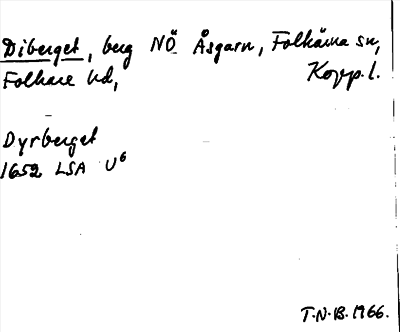 Diberget, berg NÖ Åsgarn, Folkärna sn,
Folkare hd, Kopp. l.
Dyrberget
1652 LSA U6
T.N.B. 1966.